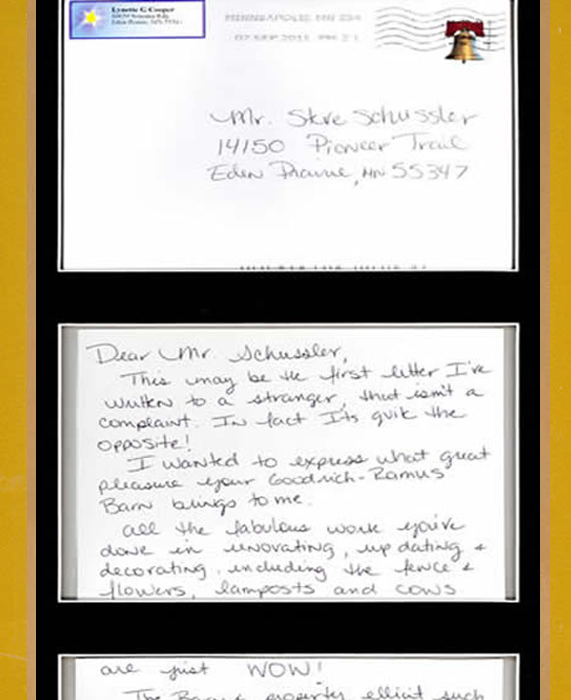 Lynette G Cooper
MINNEAPOLIS MN 554
07 SEP 2011 PM 2 L
Mr. Steve Schussler
14150 Pioneer Trail
Eden Prairie, MN 55347
Dear Mr. Schussler,
This may be the first letter I've
written to a stranger, that isn't a
complaint. In fact It's quite the
opposite!
I wanted to express what great
pleasure your Goodrich-Ramus
Barn brings to me.
All the fabulous work you've
done in renovating, updating &
decorating, including the fence &
flowers, lamposts and cows
are just WOW!
The Barn & property ellicit such